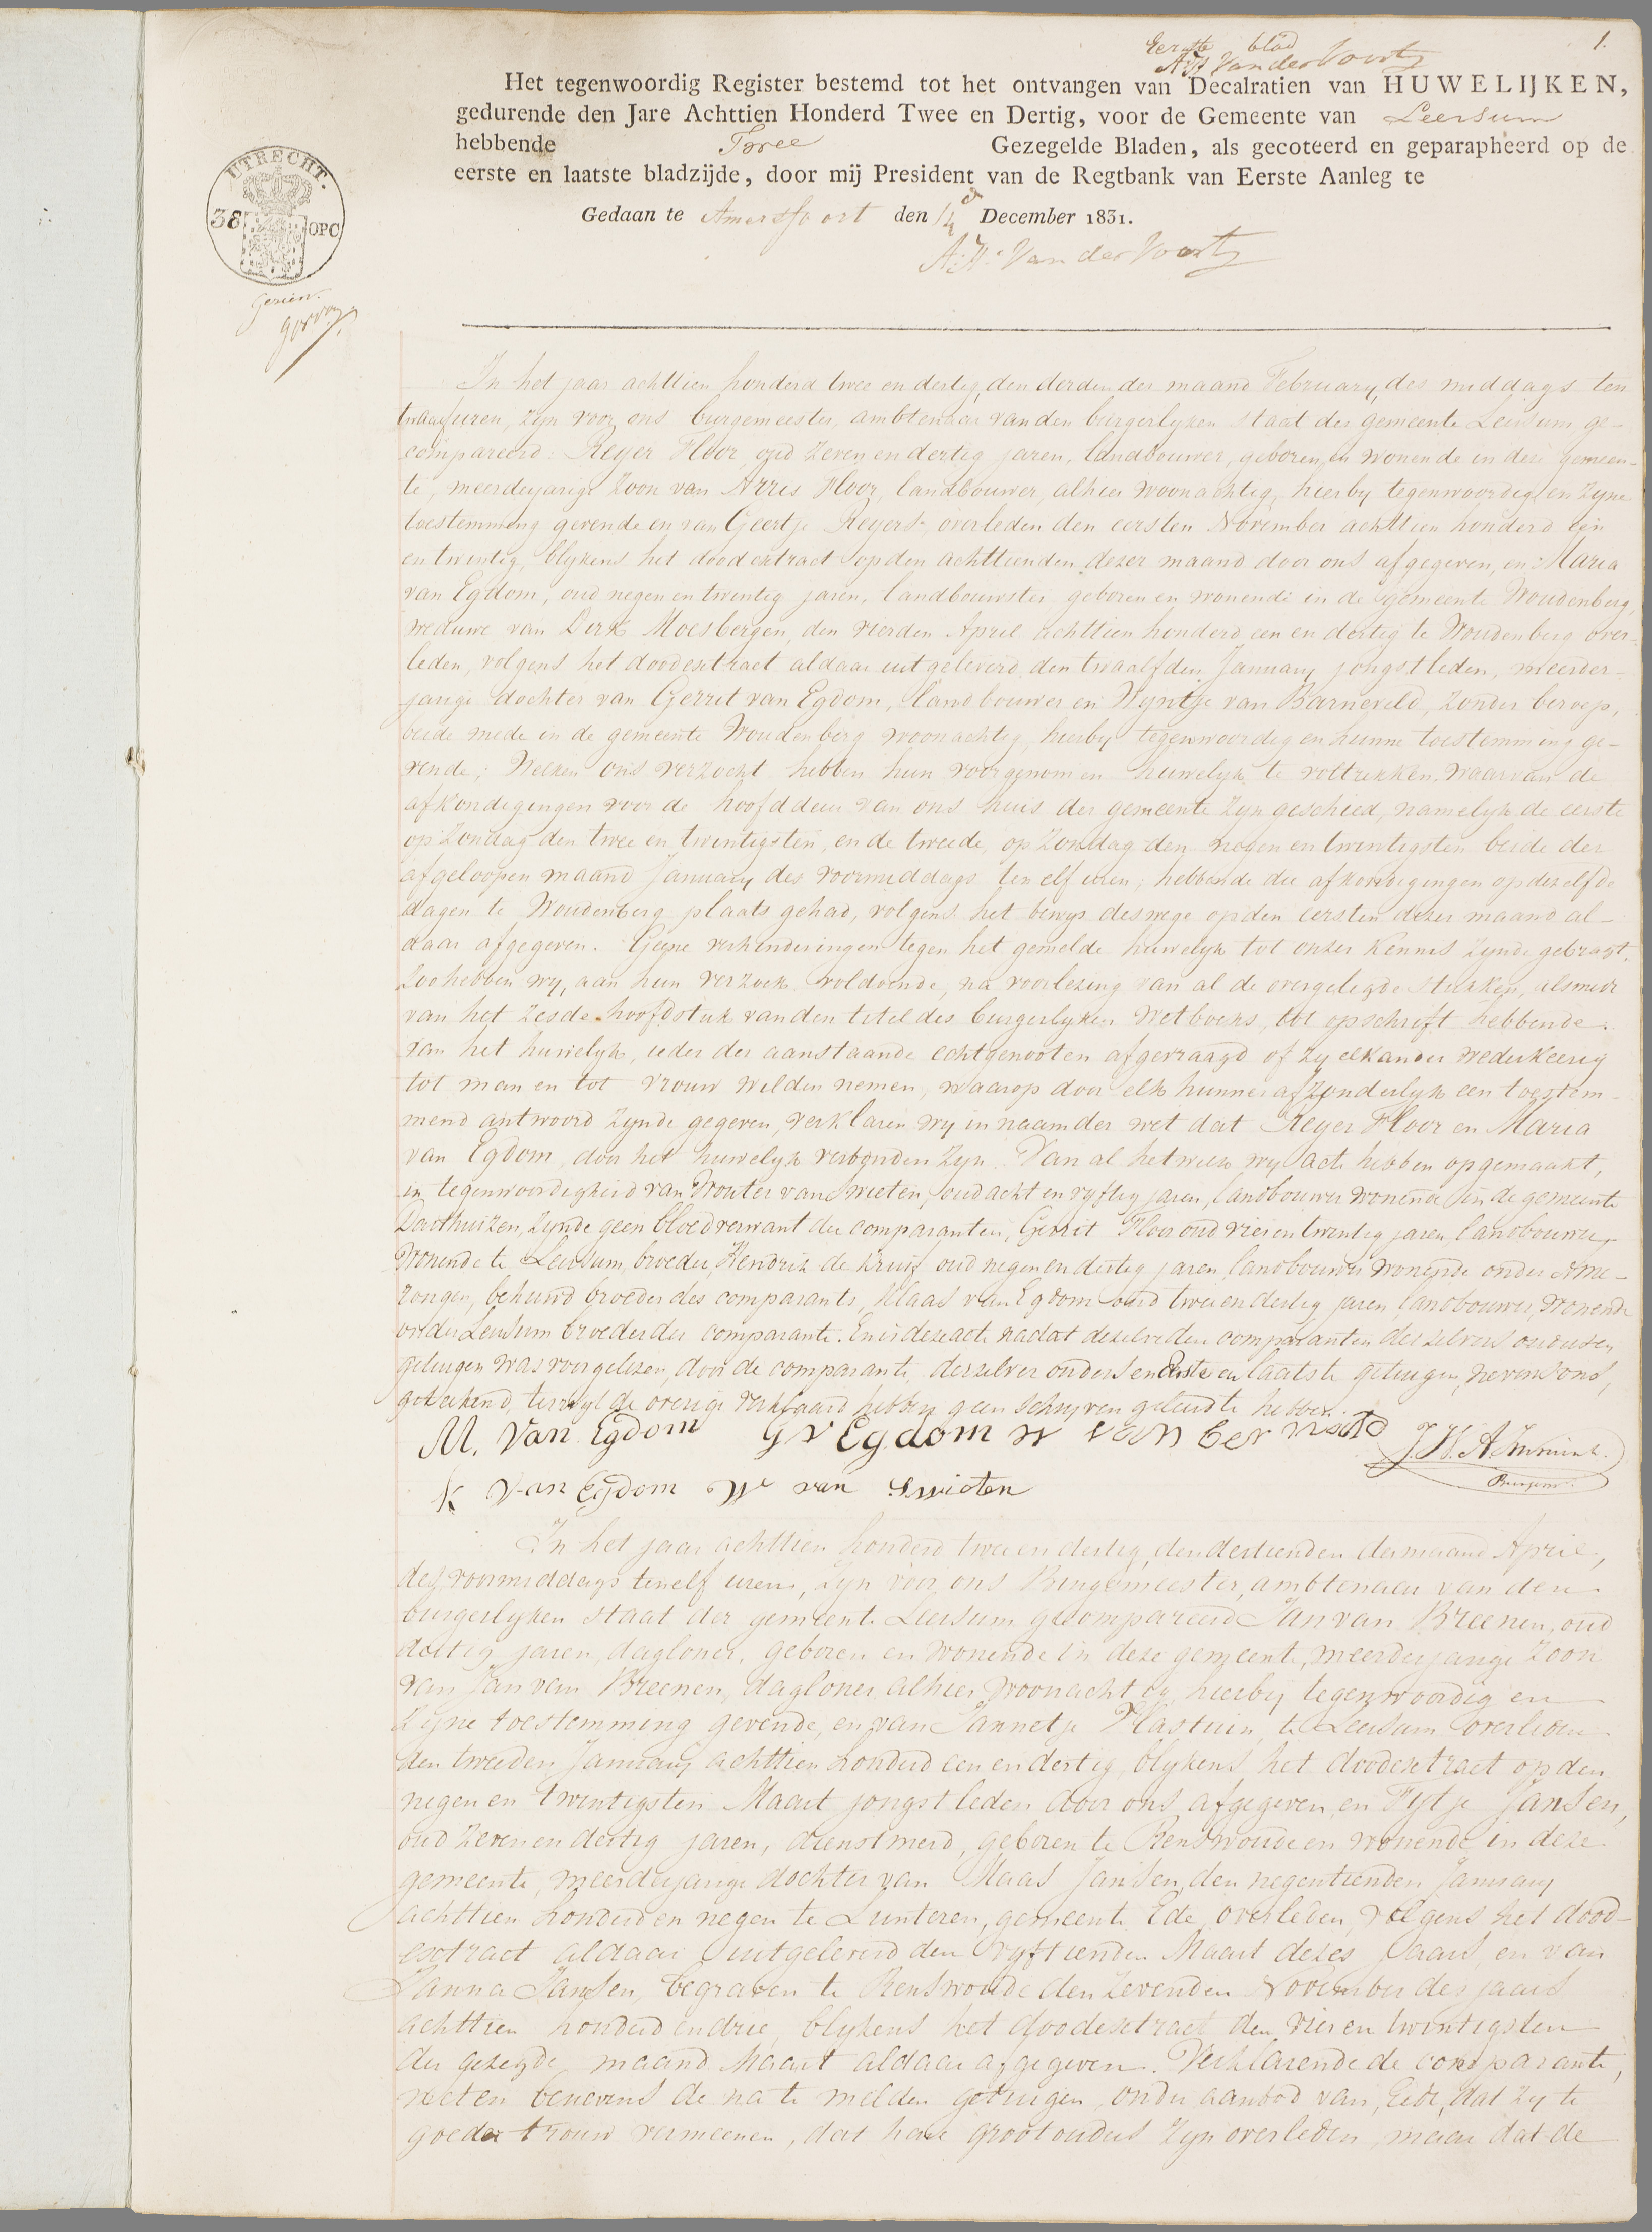 1.
Eerste blad
A:H: Van der Voort
Het tegenwoordig Register bestemd tot het ontvangen van Decalratien van HUWELIJKEN,
gedurende den Jare Achttien Honderd Twee en Dertig, voor de Gemeente van Leersum
hebbende Twee Gezegelde Bladen, als gecoteerd en geparapheerd op de
eerste en laatste bladzijde, door mij President van de Regtbank van Eerste Aanleg te
UTRECHT.
38 OPC
Gedaan te Amersfoort den 14 December 1831.
A:H: Van der Voort
Gezien.
In het jaar achttien honderd twee en dertig, den derden der maand February, des middags ten
twaalf uren, zyn voor ons burgemeester, ambtenaar van den burgerlyken staat der gemeente Leersum, ge-
compareerd: Reyer Floor, oud zeven en dertig jaren, landbouwer, geboren en wonende in deze gemeen-
te, meerderjarige zoon van Arris Floor, landbouwer, alhier woonachtig, hierby tegenwoordig en zyne
toestemming gevende en van Geertje Reyers, overleden den eersten November achttien honderd een
en twintig, blykens het doodextract op den achttienden dezer maand door ons afgegeven, en Maria
van Egdom, oud negen en twintig jaren, landbouwster geboren en wonende in de gemeente Woudenberg,
weduwe van Dirk Moesbergen, den vierden April achttien honderd een en dertig te Woudenberg over-
leden, volgens het doodextract aldaar uitgeleverd den twaalfden January jongstleden, meerder-
jarige dochter van Gerrit van Egdom, landbouwer en Wyntje van Barneveld, zonder beroep,
beide mede in de gemeente Woudenberg woonachtig, hierby tegenwoordig en hunne toestemming ge-
vende; Welken ons verzocht hebben hun voorgenomen huwelyk te voltrekken, waarvan de
afkondigingen voor de hoofddeur van ons huis der gemeente zyn geschied, namelyk de eerste
op Zondag den twee en twintigsten, en de tweede, op Zondag den negen en twintigsten beide der
afgeloopen maand January des voormiddags ten elf uren; hebbende die afkondigingen op dezelfde
dagen te Woudenberg plaats gehad, volgens het bewys deswege op den eersten dezer maand al-
daar afgegeven. Geene verhinderingen tegen het gemelde huwelyk tot onzer kennis zynde gebragt,
Zoo hebben wy, aan hun verzoek voldoende, na voorlezing van al de overgelegde stukken, alsmede
van het zesde hoofdstuk van den titel des burgerlyken Wetboeks, tot opschrift hebbende:
Van het huwelyk, ieder der aanstaande echtgenooten afgevraagd of zy elkander wederkeerig
tot man en tot vrouw wilden nemen, waarop door elk hunner afzonderlyk een toestem-
mend antwoord zynde gegeven, verklaren wy in naam der wet dat Reyer Floor en Maria
van Egdom, door het huwelyk verbonden zyn. Van al hetwelk wy acte hebben opgemaakt,
in tegenwoordigheid van Wouter van Swieten, oud acht en vyftig jaren, landbouwer wonende in de gemeente
Darthuizen, zynde geen bloedverwant der comparanten, Gerrit Floor oud vier en twintig jaren, landbouwer,
Wonende te Leersum, broeder, Hendrik de Kruif oud negen en dertig jaren, landbouwer wonende onder Ame-
rongen, behuwd broeder des comparants, Klaas van Egdom oud twee en dertig jaren, landbouwer, wonende
onder Leersum broeder der comparante. En is deze acte nadat dezelve den comparanten derzelver ouderen
getuigen was voorgelezen, door de comparante, derzelver ouders en eerste en laatste getuigen, nevens ons,
geteekend, terwyl de overige verklaard hebben geen schryven geleerd te hebben.
M. Van Egdom G v Egdom W van Bernveld
Burgem:
K van Egdom W van Swieten
In het jaar achttien honderd twee en dertig, den dertienden der maand April,
des voormiddags ten elf uren, zyn voor ons Burgemeester, ambtenaar van den
burgerlyken staat der gemeente Leersum gecompareerd Jan van Breenen, oud
dertig jaren, dagloner, geboren en wonende in deze gemeente, meerderjarige zoon
van Jan van Breenen, dagloner alhier woonachtig, hierby tegenwoordig en
zyne toestemming gevende, en van Jannetje Plastuin, te Leersum overleden
den tweeden January achttien honderd een en dertig, blykens het doodextract op den
negen en twintigsten Maart jongstleden door ons afgegeven, en Fytje Jansen,
oud zeven en dertig jaren, dienstmeid, geboren te Renswoude en wonende in deze
gemeente, meerderjarige dochter van Maas Jansen, den negentienden January
achttien honderd en negen te Lunteren, gemeente Ede, overleden, volgens het dood-
extract aldaar uitgeleverd den vyftienden Maart dezes jaars, en van
Janna Jansen, begraven te Renswoude den zevenden November des jaars
achttien honderd en drie, blykens het doodextract den vier en twintigsten
der gezegde maand Maart aldaar afgegeven. Verklarende de comparante,
met en benevens de na te melden getuigen, onder aanbod van Eede, dat zy te
goeder trouw vermeenen, dat hare grootouders zyn overleden, maar dat de